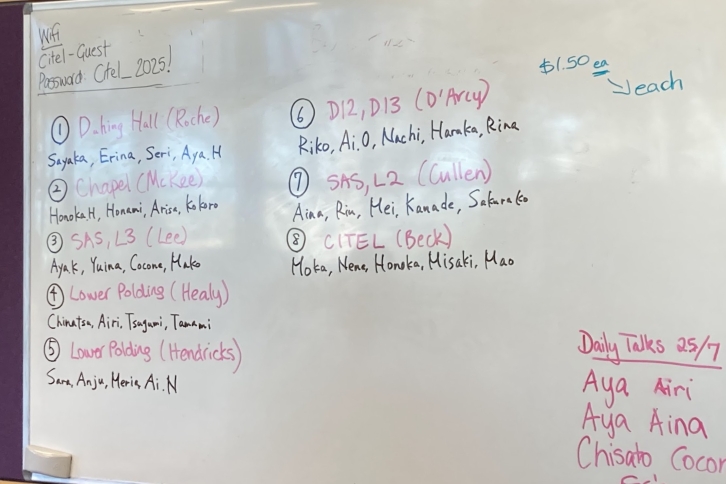 Wifi
Citel-Guest
Password: Citel_2025!
① Duhing Hall (Roche)
Sayaka, Erina, Seri, Aya.H
② Chapel (McKee)
Honoka.H, Honami, Arisa, Kokoro
③ SAS, L3 (Lee)
Aya.K, Yuina, Cocone, Mako
④ Lower Polding (Healy)
Chinatsu, Airi, Tsugumi, Tamami
⑤ Lower Polding (Hendricks)
Sara, Anju, Meria, Ai.N
⑥ D12, D13 (D'Arcy)
Riko, Ai.O, Nachi, Haruka, Rina
⑦ SAS, L2 (Cullen)
Aina, Rin, Mei, Kanade, Sakurako
⑧ CITEL (Beck)
Moka, Nene, Honoka, Misaki, Mao
$1.50 ea
each
Daily Talks 25/7
Aya Airi
Aya Aina
Chisato Cocon